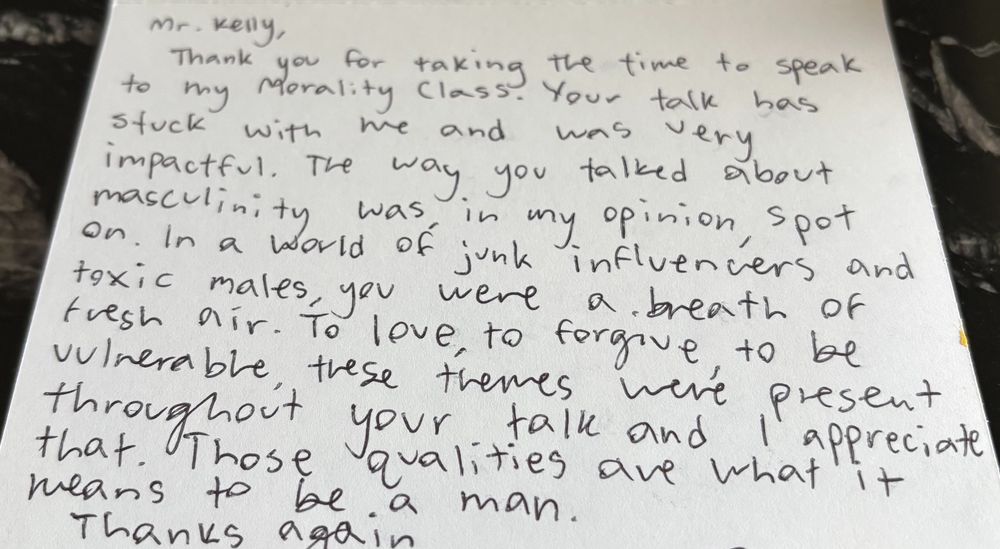 Mr. Kelly,
Thank you for taking the time to speak
to my Morality Class. Your talk has
stuck with me and was very
impactful. The way you talked about
masculinity was, in my opinion, spot
on. In a world of junk influencers and
toxic males, you were a breath of
fresh air. To love, to forgive, to be
vulnerable, these themes were present
throughout your talk and I appreciate
that. Those qualities are what it
means to be a man.
Thanks again